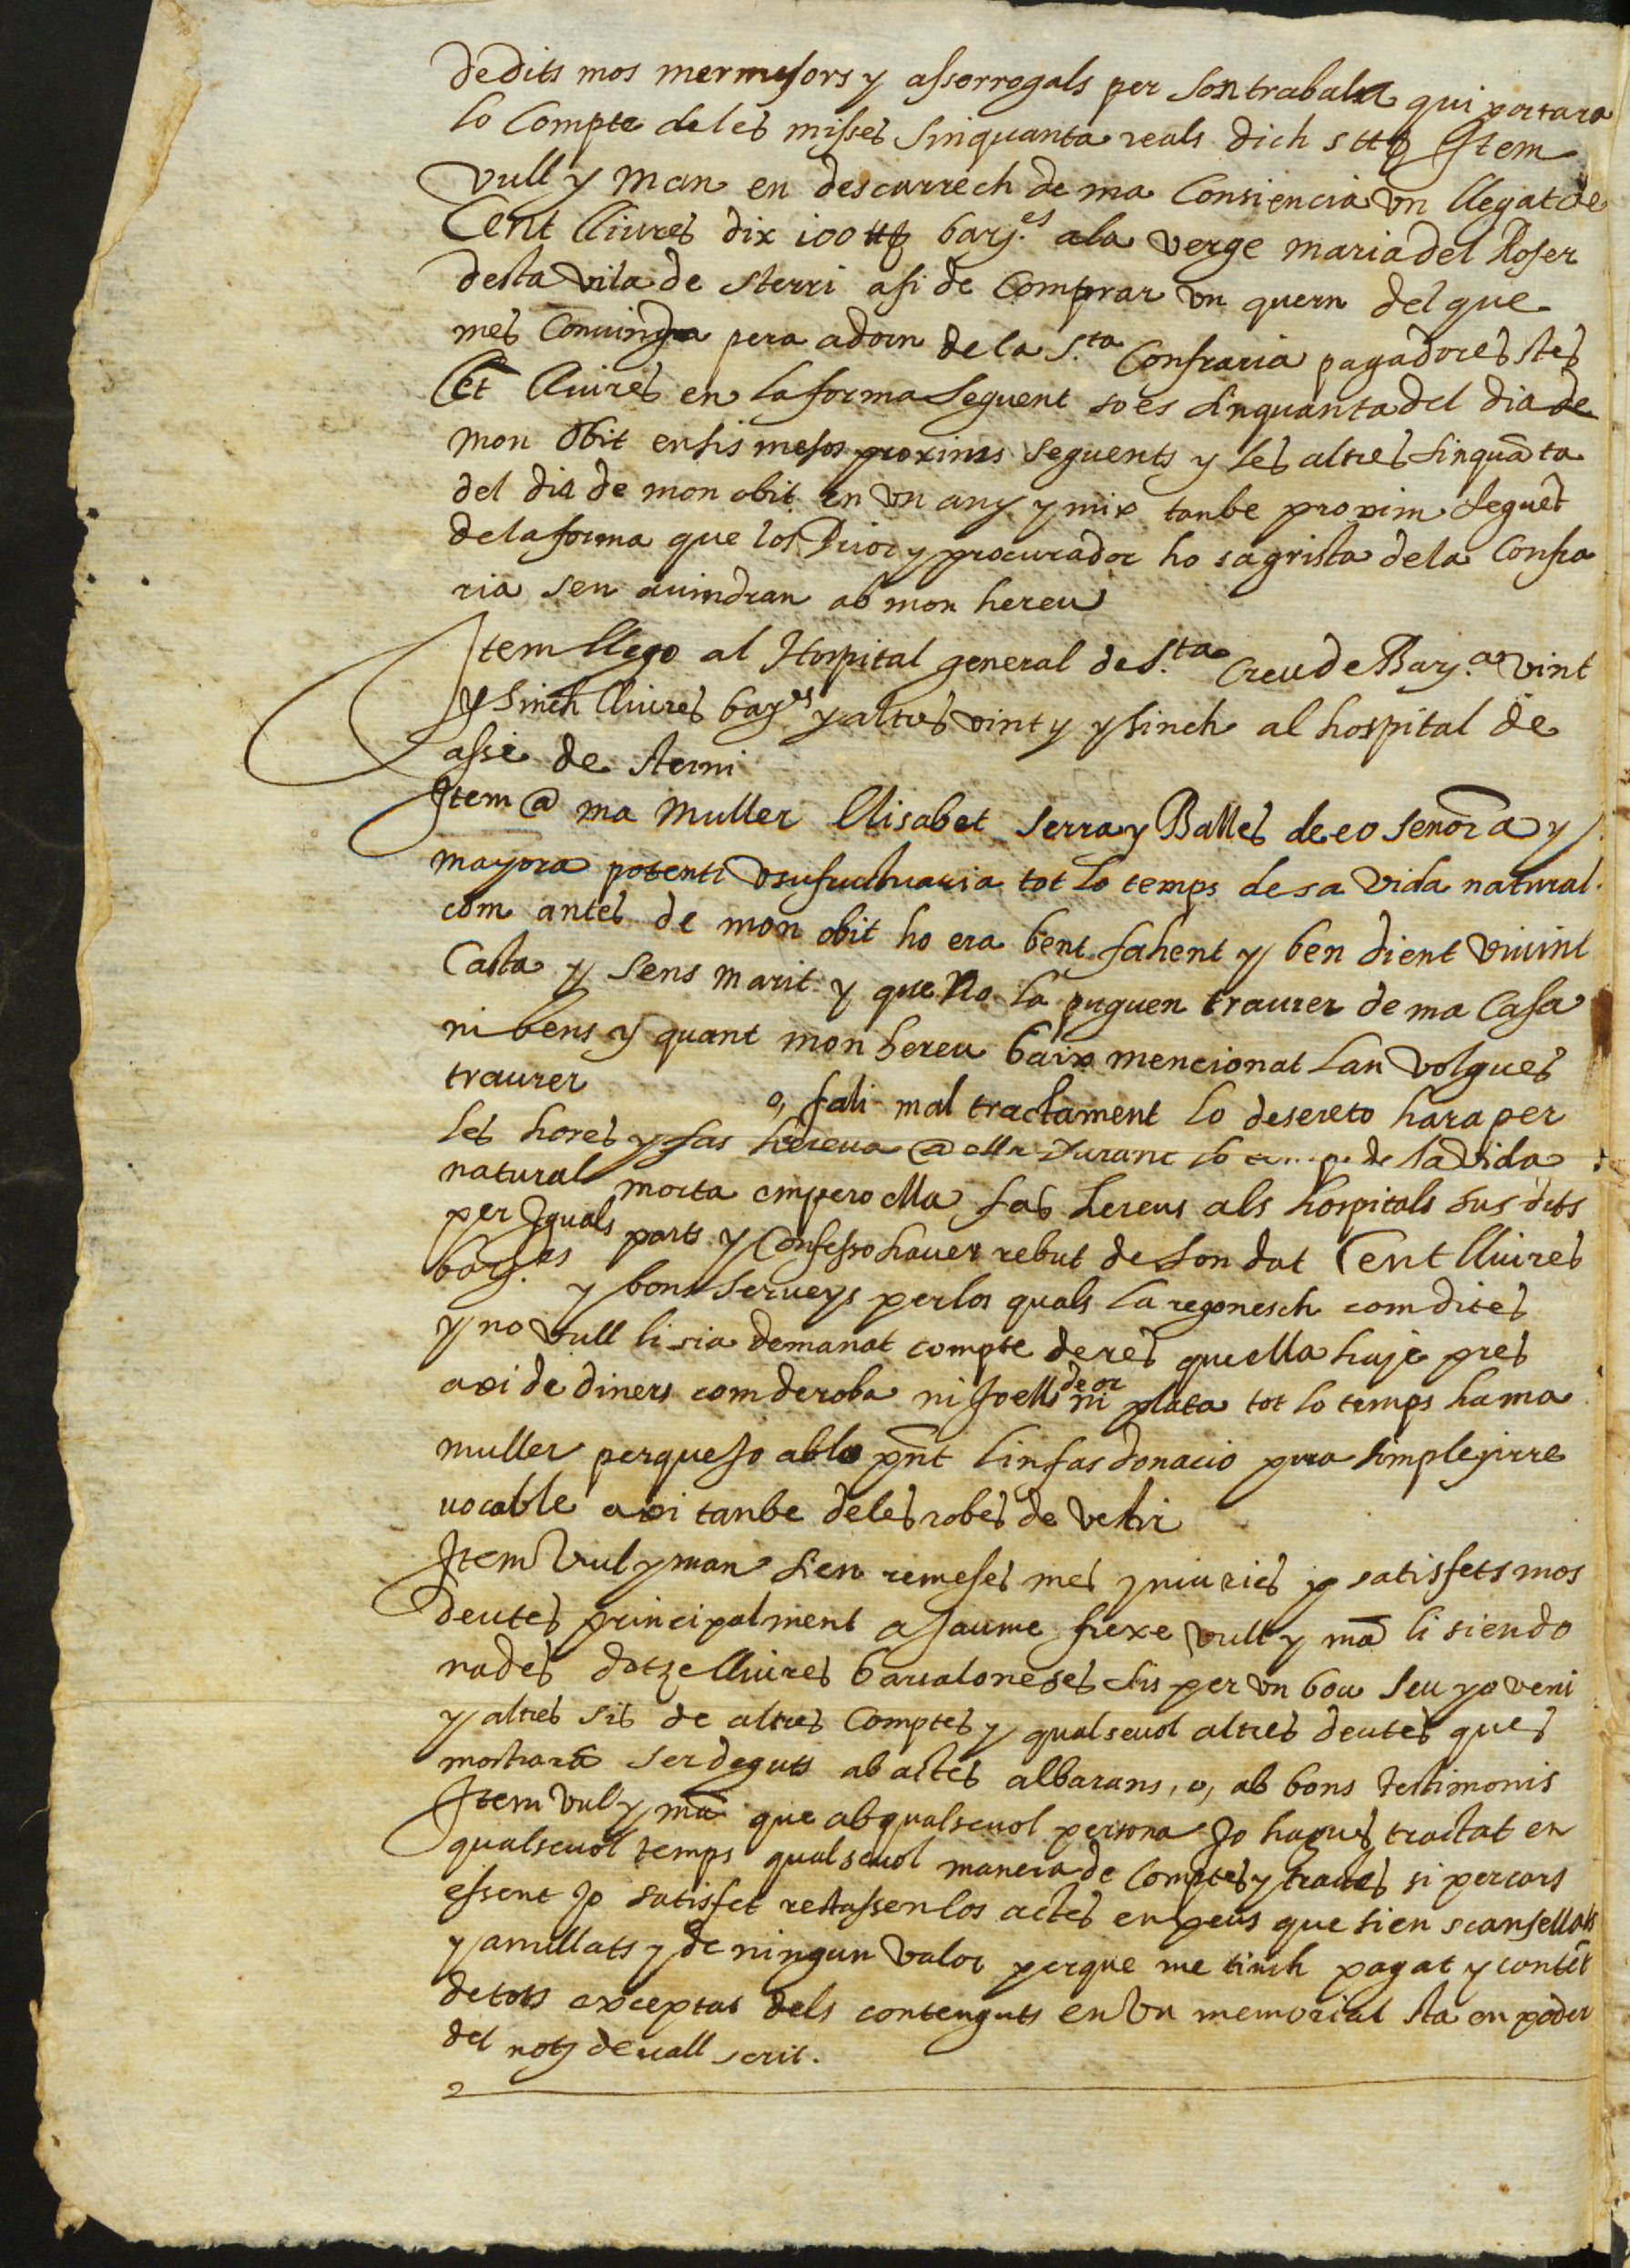 dedits mos mermessors y assorrogals per son traball qui portara
lo Compte de les misses sinquanta reals dich 5 ℔ Item
vull y man en descarrech de ma Consiencia vn llegat de
Cent lliures dix 100 ℔ barses. ala verge maria del Roser
desta vila de sterri afi de Comprar vn quern del que
mes Convinga pera adorn de la S.ta Confraria pagadores stes
Cēt lliures en la forma seguent so es sinquanta del dia de
mon obit en sis mesos proxims seguents y les altres sinquāta
del dia de mon obit en vn any y mix tanbe proxim seguēt
de la forma que los Prior y procurador ho sagrista dela Confra
ria sen avindran ab mon hereu
Item llego al Hospital general de S.ta Creu de Barj.a vint
y sinch lliures barses y altres vint y y sinch al hospital de
assi de sterri
Item @ ma muller Elisabet Serra y Balles deeo senōra y
mayora potent vsufructuaria tot lo temps de sa vida natural
com antes de mon obit ho era bent fahent y ben dient vivint
Casta y sens marit y que no la puguen traurer de ma Casa
ni bens y quant mon hereu baix mencionat lan volgues
traurer o, fali mal tractament lo desereto hara per
les hores y fas hereva @ ella Durant lo de sa vida
natural morta empero ella fas hereus als hospitals sus dits
per Iguals parts y Confesso haver rebut de son dot Cent lliures
barj.es y bons serveys per los quals la regonesch com dites
y no vull li sia demanat compte de res quella haje pres
axi de diners com de roba ni Joells de or ni plata tot lo temps ha ma
muller perque Jo ab lo pn̄t linfas donacio pura simple yirre
vocable axi tanbe de les robes de vestir
Item Vull y man sien remeses mes yniuries y satisfets mos
deutes principalment a Jaume frexe vull y mā li sien do
nades dotze lliures barcaloneses sis per vn bou seu yo veni
y altres sis de altres Comptes y qualsevol altres deutes ques
mostrarā ser deguts ab actes albarans, o, ab bons testimonis
Item vull y mā que ab qualsevol persona Jo hagues tractat en
qualsevol temps qualsevol manera de Comptes y tractes si per cars
essent Jo satisfet restassen los actes en peus que sien scansellats
y anullats y de ningun valor perque me tinch pagat y contēt
de tots exceptat dels contenguts en vn memorial sta en poder
del not devall scrit.